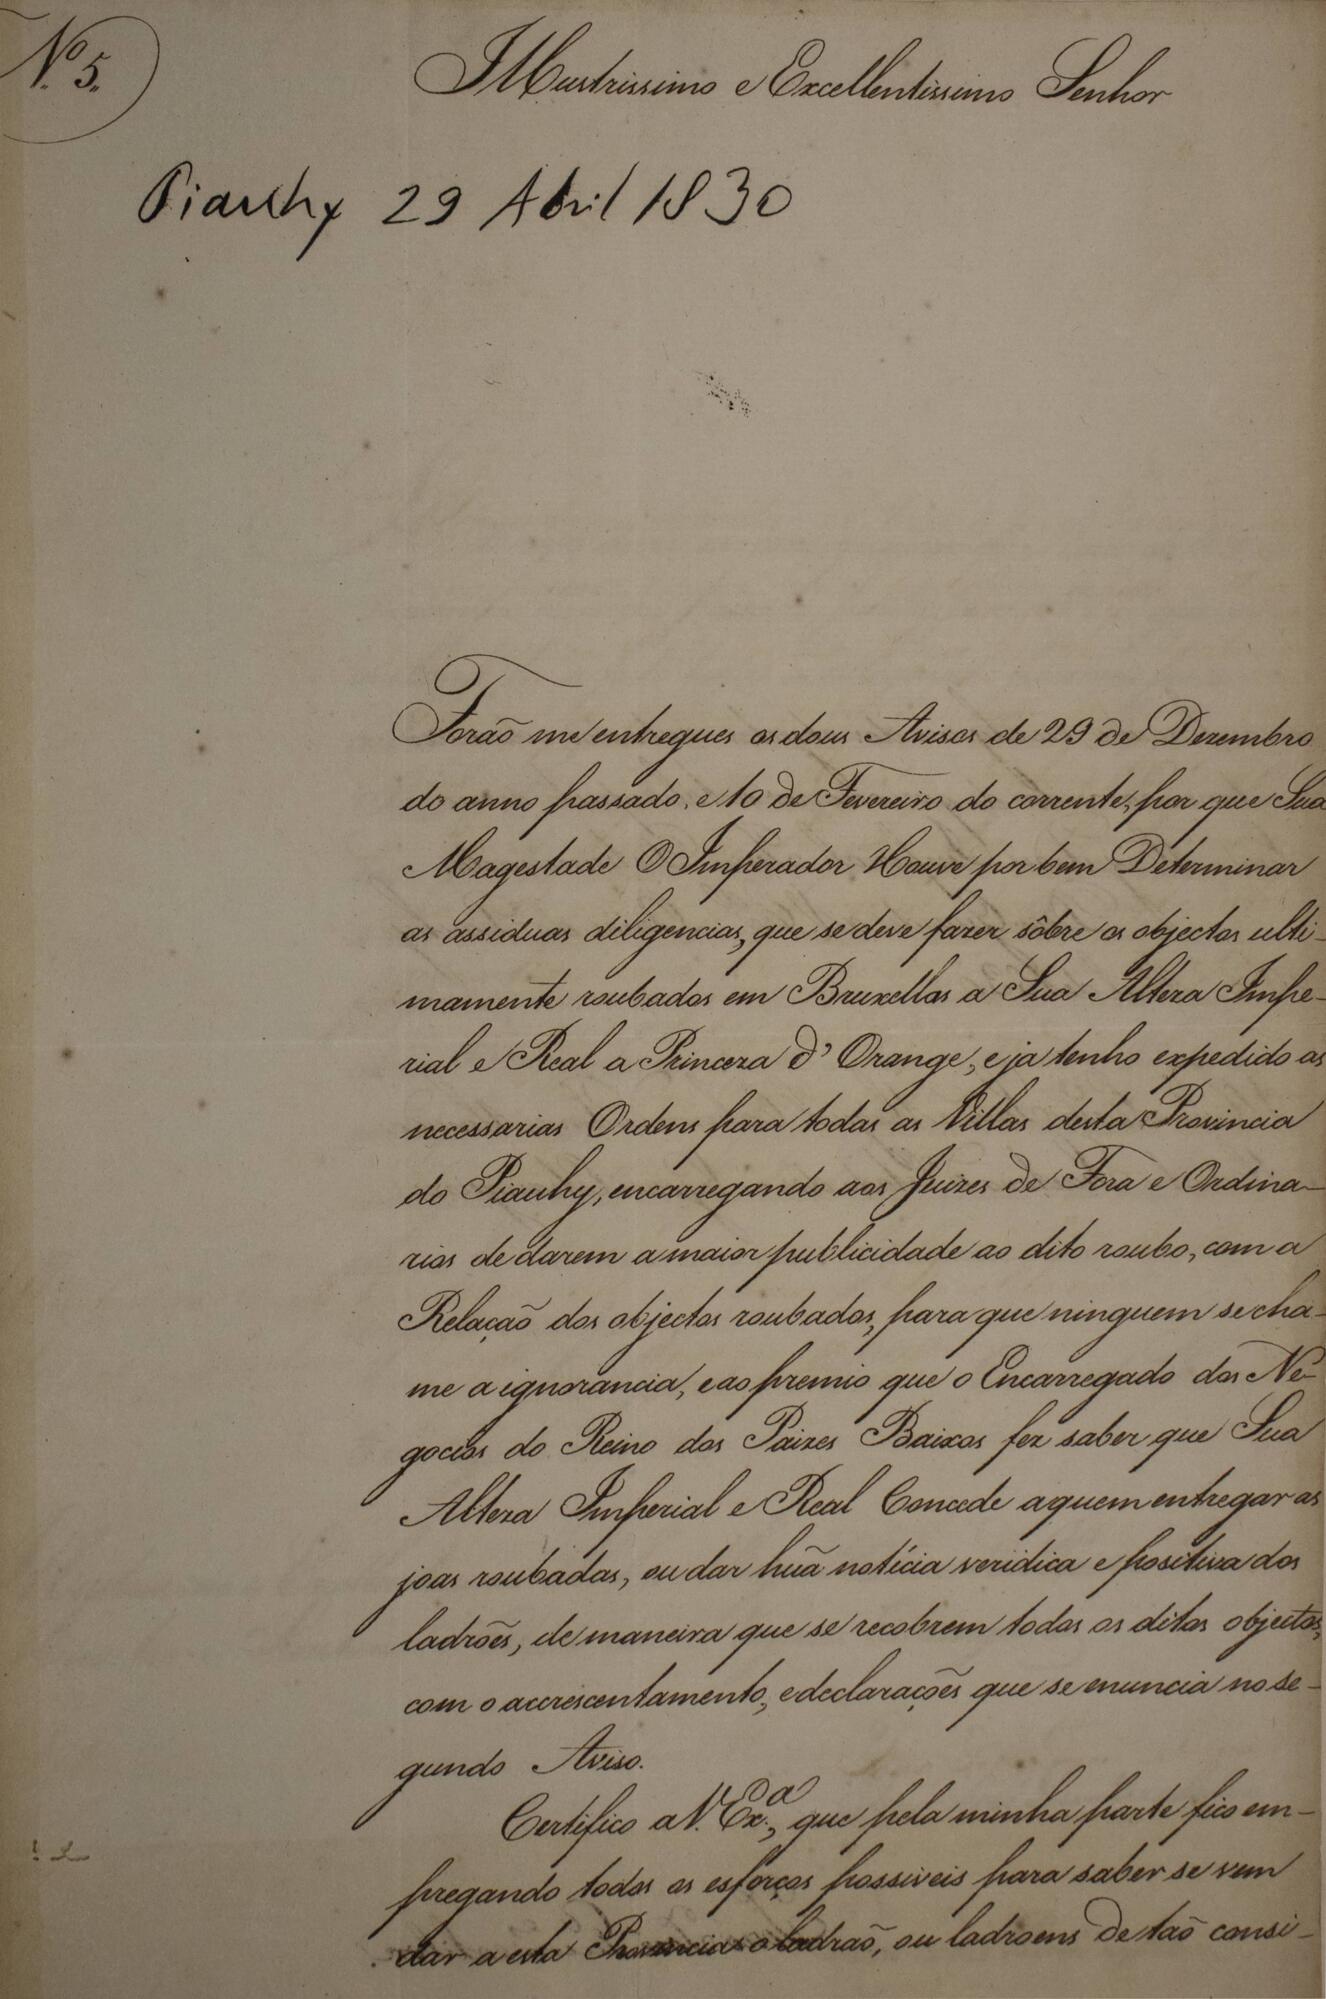 Nº 5.
Illustrissimo e Excellentissimo Senhor
Piauhy 29 Abril 1830
Forão me entregues os dous Avisos de 29 de Dezembro
do anno passado, e 10 de Fevereiro do corrente, por que Sua
Magestade O Imperador Houve por bem Determinar
as assiduas diligencias, que se deve fazer sôbre os objectos ulti-
mamente roubados em Bruxellas a Sua Alteza Impe-
rial e Real a Princeza d' Orange, e ja tenho expedido as
necessarias Ordens para todas as Villas desta Provincia
do Piauhy, encarregando aos Juizes de Fora e Ordina-
rios de darem a maior publicidade ao dito roubo, com a
Relação dos objectos roubados, para que ninguem se cha-
me a ignorancia, e ao premio que o Encarregado dos Ne-
gocios do Reino dos Paizes Baixos fez saber que Sua
Alteza Imperial e Real Concede a quem entregar as
joas roubadas, ou dar hũa notícia veridica e positiva dos
ladrões, de maneira que se recobrem todos os ditos objectos,
com o accrescentamento, e declarações que se enuncia no se-
gundo Aviso.
Certifico a V. Ex.ª, que pela minha parte fico em-
pregando todos os esforços possiveis para saber se vem
dar a esta Provincia o ladrão, ou ladroens de tão consi-